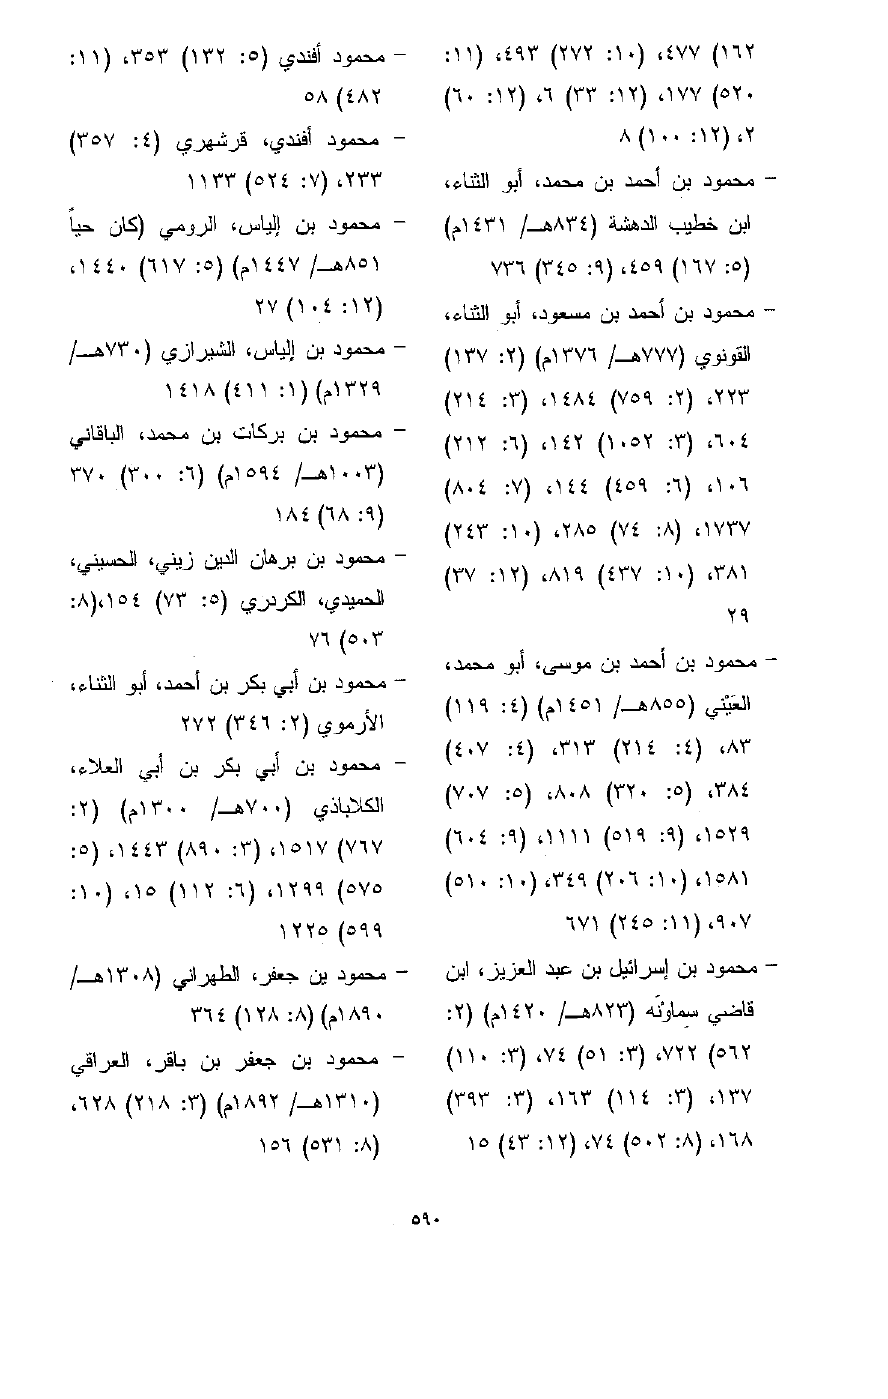 ١٦٢) ٤٧٧، (١٠: ٢٧٢) ٤٩٣، (١١:
٥٢٠) ١٧٧، (١٢: ٣٣) ٦، (١٢: ٦٠)
٢، (١٢: ١٠٠) ٨
– محمود بن أحمد بن محمد، أبو الثناء،
ابن خطيب الدهشة (٨٣٤هـ/ ١٤٣١م)
(٥: ١٦٧) ٤٥٩، (٩: ٣٤٥) ٧٣٦
– محمود بن أحمد بن مسعود، أبو الثناء،
القونوي (٧٧٧هـ/ ١٣٧٦م) (٢: ١٣٧)
٢٢٣، (٢: ٧٥٩) ١٤٨٤، (٣: ٢١٤)
٦٠٤، (٣: ١٠٥٢) ١٤٢، (٦: ٢١٢)
١٠٦، (٦: ٤٥٩) ١٤٤، (٧: ٨٠٤)
١٧٣٧، (٨: ٧٤) ٢٨٥، (١٠: ٢٤٣)
٣٨١، (١٠: ٤٣٧) ٨١٩، (١٢: ٣٧)
٢٩
– محمود بن أحمد بن موسى، أبو محمد،
العَيْني (٨٥٥هـ/ ١٤٥١م) (٤: ١١٩)
٨٣، (٤: ٢١٤) ٣١٣، (٤: ٤٠٧)
٣٨٤، (٥: ٣٢٠) ٨٠٨، (٥: ٧٠٧)
١٥٢٩، (٩: ٥١٩) ١١١١، (٩: ٦٠٤)
١٥٨١، (١٠: ٢٠٦) ٣٤٩، (١٠: ٥١٠)
٩٠٧، (١١: ٢٤٥) ٦٧١
– محمود بن إسرائيل بن عبد العزيز، ابن
قاضي سِماوْنَه (٨٢٣هـ/ ١٤٢٠م) (٢:
٥٦٢) ٧٢٢، (٣: ٥١) ٧٤، (٣: ١١٠)
١٣٧، (٣: ١١٤) ١٦٣، (٣: ٣٩٣)
١٦٨، (٨: ٥٠٢) ٧٤، (١٢: ٤٣) ١٥
– محمود أفندي (٥: ١٣٢) ٣٥٣، (١١:
٤٨٢) ٥٨
– محمود أفندي، قرشهري (٤: ٣٥٧)
٢٣٣، (٧: ٥٢٤) ١١٣٣
– محمود بن إلياس، الرومي (كان حياً
٨٥١هـ/ ١٤٤٧م) (٥: ٦١٧) ١٤٤٠،
(١٢: ١٠٤) ٢٧
– محمود بن إلياس، الشيرازي (٧٣٠هـ/
١٣٢٩م) (١: ٤١١) ١٤١٨
– محمود بن بركات بن محمد، الباقاني
(١٠٠٣هـ/ ١٥٩٤م) (٦: ٣٠٠) ٣٧٠
(٩: ٦٨) ١٨٤
– محمود بن برهان الدين زيني، الحسيني،
الحميدي، الكردري (٥: ٧٣) ١٥٤،(٨:
٥٠٣) ٧٦
– محمود بن أبي بكر بن أحمد، أبو الثناء،
الأرموي (٢: ٣٤٦) ٢٧٢
– محمود بن أبي بكر بن أبي العلاء،
الكلاباذي (٧٠٠هـ/ ١٣٠٠م) (٢:
٧٦٧) ١٥١٧، (٣: ٨٩٠) ١٤٤٣، (٥:
٥٧٥) ١٢٩٩، (٦: ١١٢) ١٥، (١٠:
٥٩٩) ١٢٢٥
– محمود بن جعفر، الطهراني (١٣٠٨هـ/
١٨٩٠م) (٨: ١٢٨) ٣٦٤
– محمود بن جعفر بن باقر، العراقي
(١٣١٠هـ/ ١٨٩٢م) (٣: ٢١٨) ٦٢٨،
(٨: ٥٣١) ١٥٦
٥٩٠